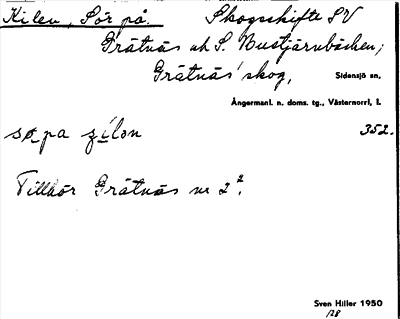 Kilen, Sör på. Skogsskifte SV
Gråtnäs och S. Bustjärnbäcken;
Gråtnäs' skog, Sidensjö sn,
Ångermanl. n. doms. tg., Västernorrl, l.
sœpa çilən 352.
Tillhör Gråtnäs nr 2².
Sven Hiller 1950
128